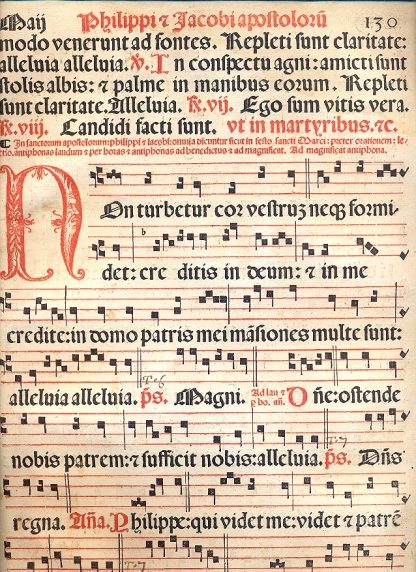 Maij Philippi ⁊ Jacobi apostoloꝝ 130
modo venerunt ad fontes. Repleti sunt claritate:
alleluia alleluia. ℣. In conspectu agni: amicti sunt
stolis albis: ⁊ palme in manibus eorum. Repleti
sunt claritate. Alleluia. ℟. vij. Ego sum vitis vera.
℟. viij. Candidi facti sunt. vt in martyribus. ⁊c.
¶ In sanctorum apostolorum: philippi ⁊ iacobi: omnia dicuntur sicut in festo sancti Marci: preter orationem: le-
ctio. antiphonas laudum ⁊ per horas ⁊ antiphonas ad benedictus ⁊ ad magnificat. Ad magnificat antiphona.
NOn turbetur cor vestruʒ neqꝫ formi-
det: cre ditis in deum: ⁊ in me
credite: in domo patris mei mãsiones multe sunt:
T. 6
alleluia alleluia. p̃s. Magni. Ad lau ⁊ p̱ ho. añ. Dñe: ostende
T. 7
nobis patrem: ⁊ sufficit nobis: alleluia. p̃s. Dñs
regna. Aña. Philippe: qui videt me: videt ⁊ patrẽ
T. 7